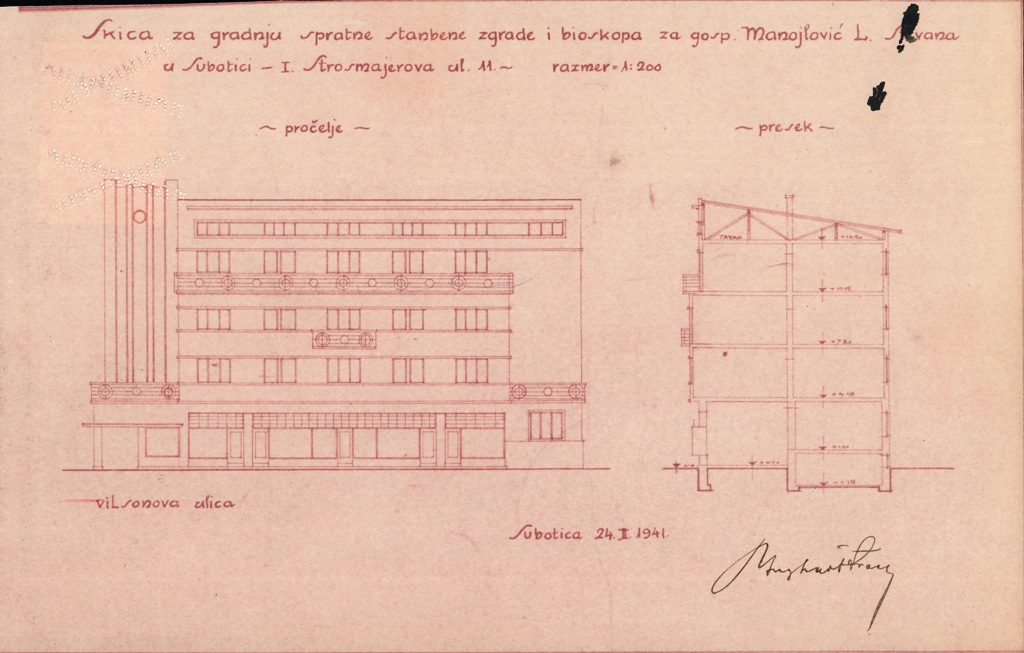 Skica za gradnju spratne stanbene zgrade i bioskopa za gosp. Manojlović L.
u Subotici – I. Strosmajerova ul. 11. ~ razmer = 1:200
~ pročelje ~
~ presek ~
TAVAN
vilsonova ulica
Subotica 24.II.1941.